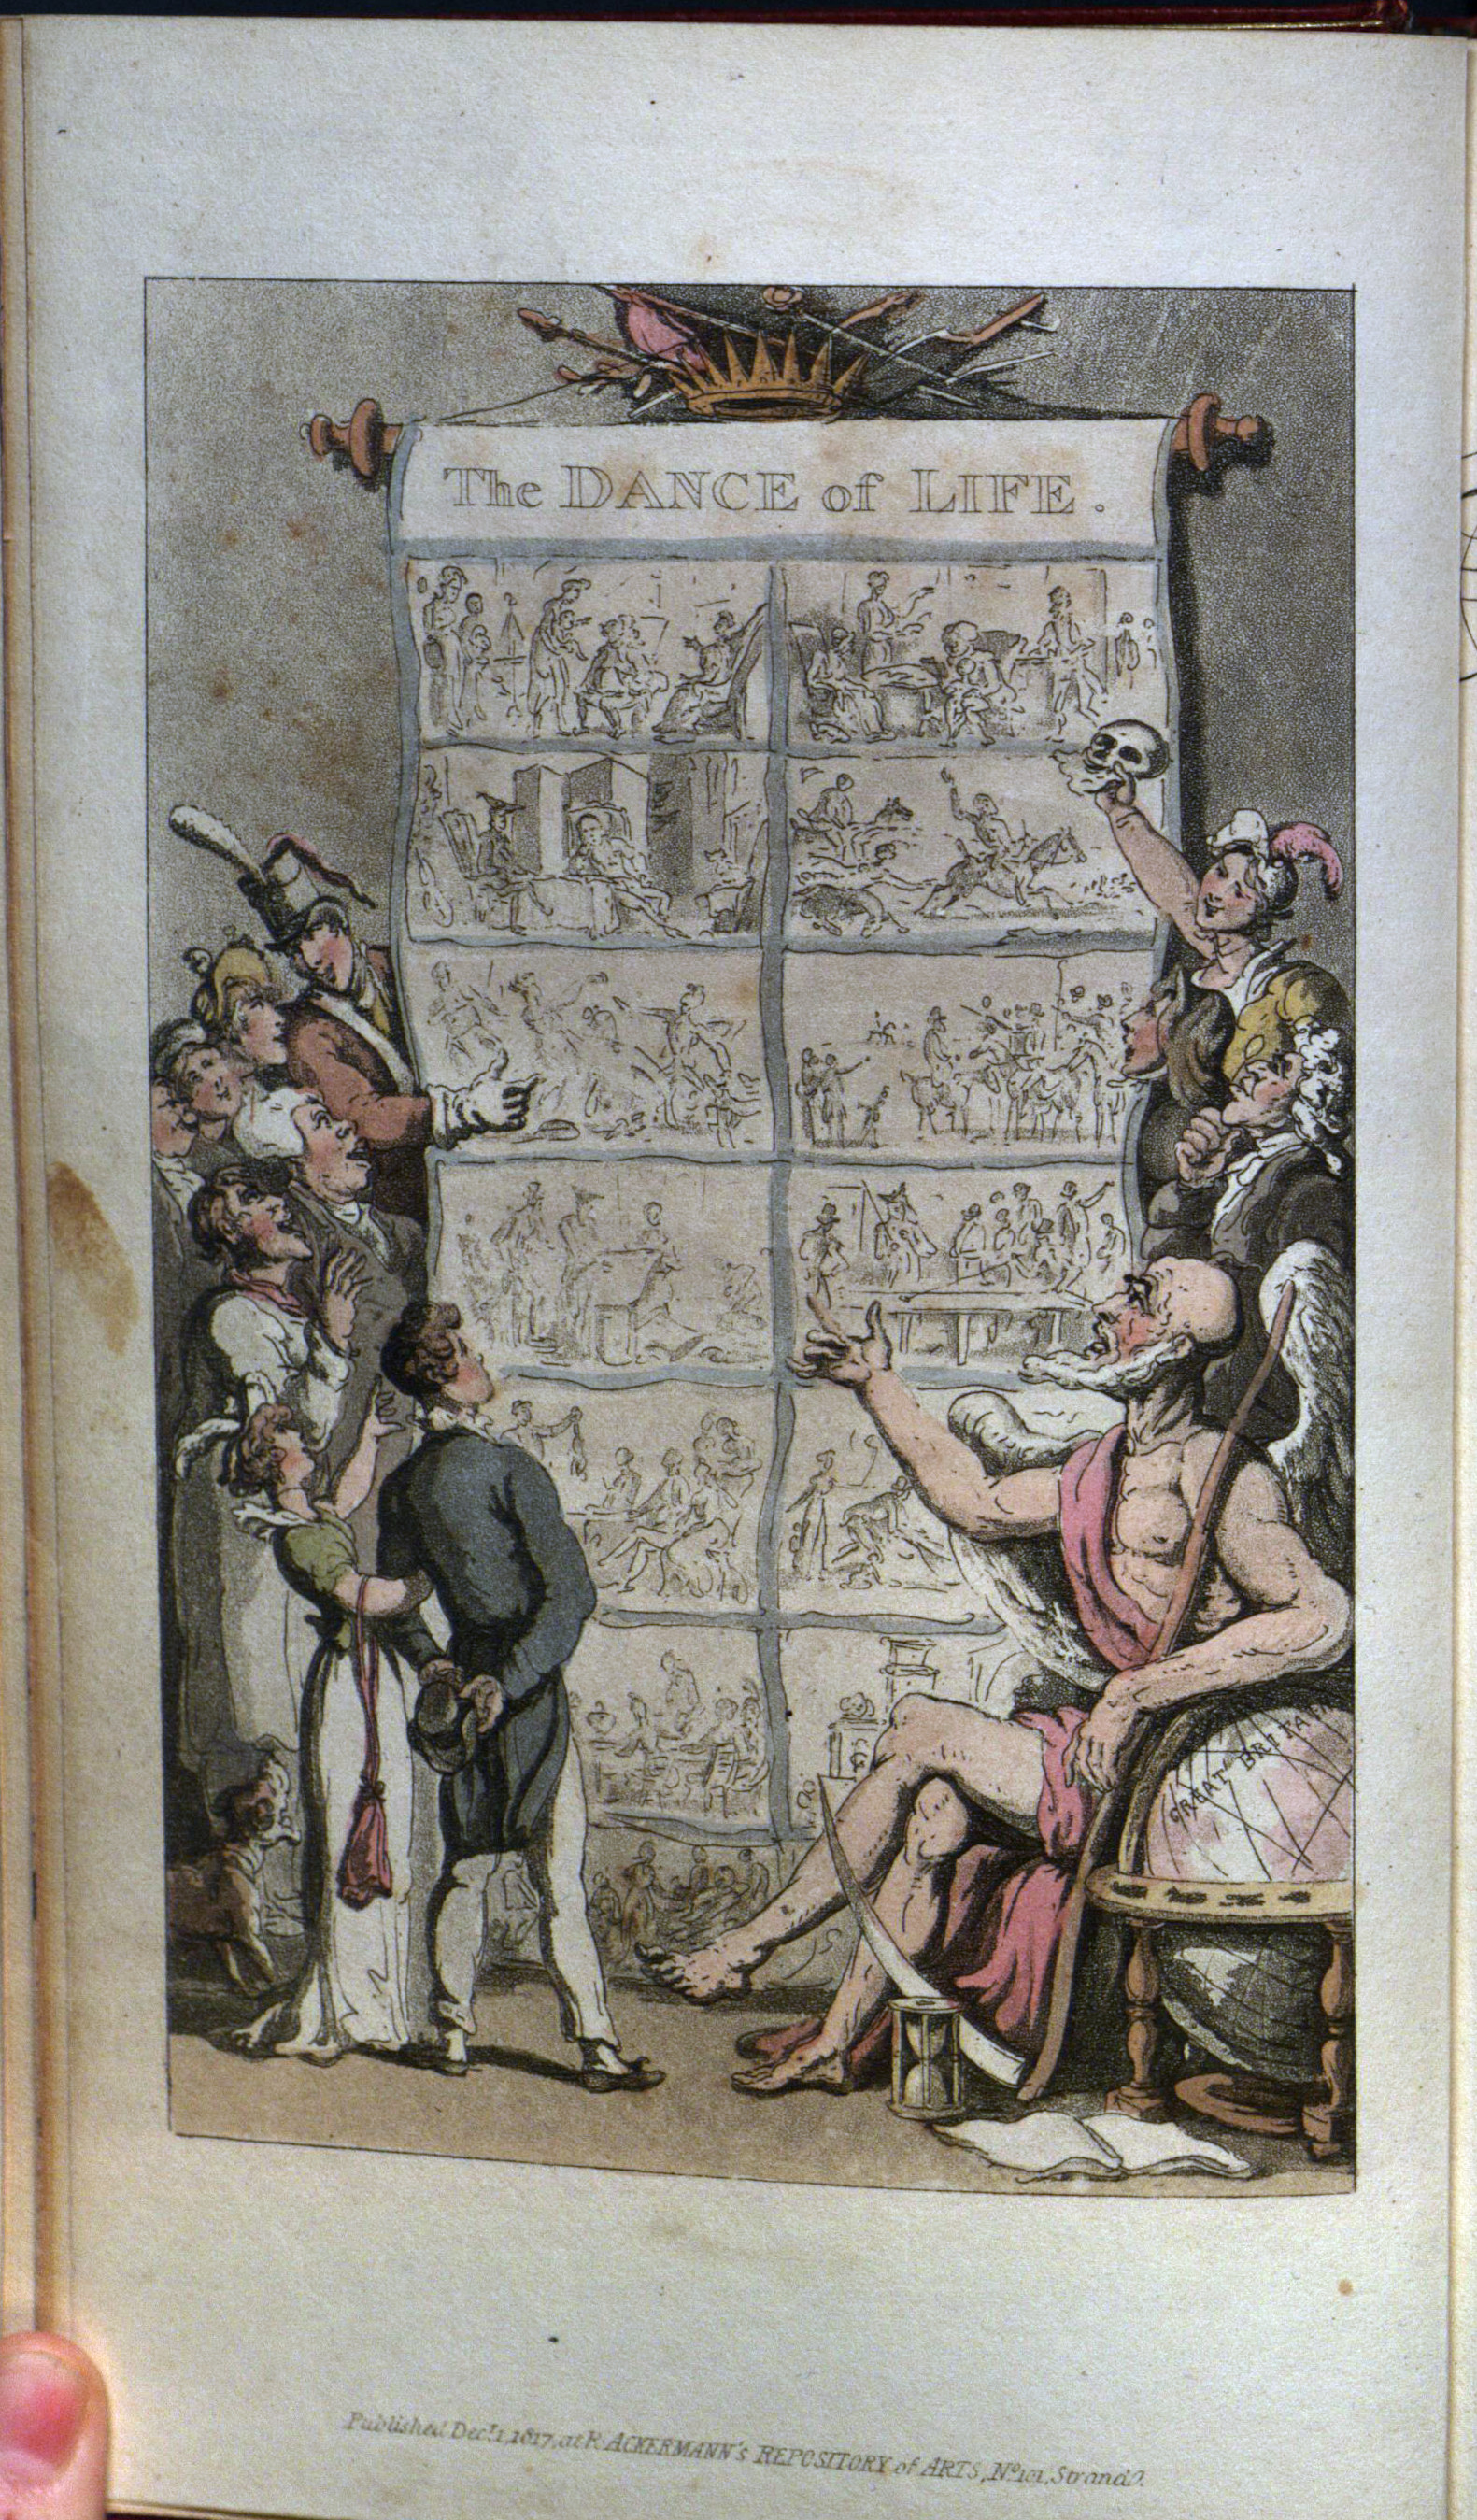 The DANCE of LIFE.
GREAT BRITAIN
Published Decr. 1, 1817, at R. ACKERMANN's REPOSITORY of ARTS, No. 101, Strand.